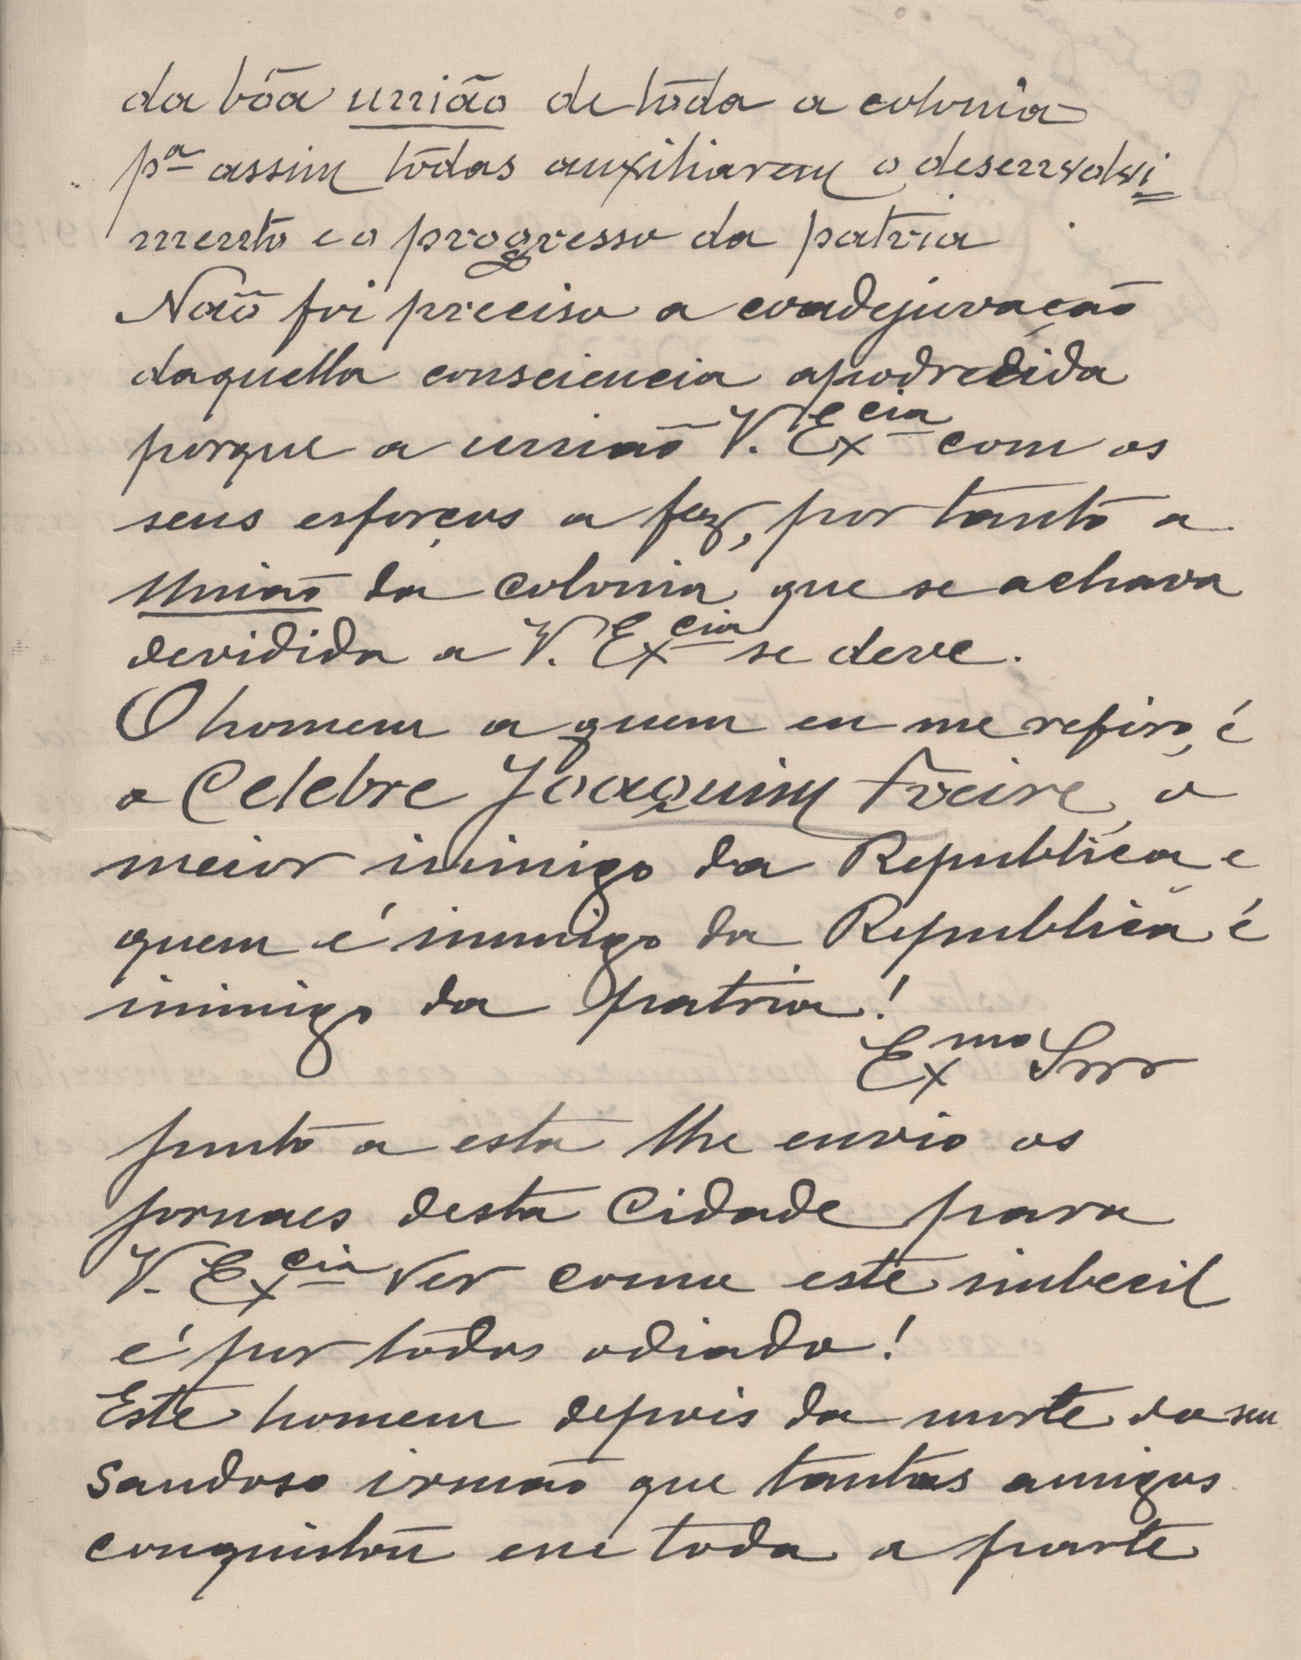 da bôa união de tôda a colonia
pª assim todos auxiliarem o desenvolvi
mento e o progresso da patria
Não foi preciso a coadejuvação
daquella consciencia apodrecida
porque a união V. Excia com os
seus esforços a fez, por tanto a
União da colonia que se achava
devidida a V. Excia se deve.
O homem a quem eu me refiro, é
o Celebre Joaquim Freire, o
meior inimigo da Republica e
quem é inimigo da Republica é
inimigo da patria!
Exmo Snr
Junto a esta lhe envio os
jornaes desta Cidade para
V. Excia ver como este imbecil
é por todos odiado!
Este homem depois da morte do seu
saudoso irmão que tantos amigos
conquistou em toda a parte